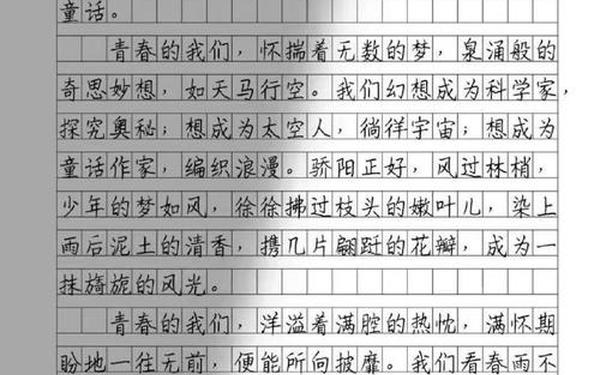 童话。
青春的我们，怀揣着无数的梦，泉涌般的
奇思妙想，如天马行空。我们幻想成为科学家，
探究奥秘；想成为太空人，徜徉宇宙；想成为
童话作家，编织浪漫。骄阳正好，风过林梢，
少年的梦如风，徐徐拂过枝头的嫩叶儿，染上
雨后泥土的清香，携几片翩跹的花瓣，成为一
抹旖旎的风光。
青春的我们，洋溢着满腔的热忱，满怀期
盼地一往无前，便能所向披靡。我们看春雨不